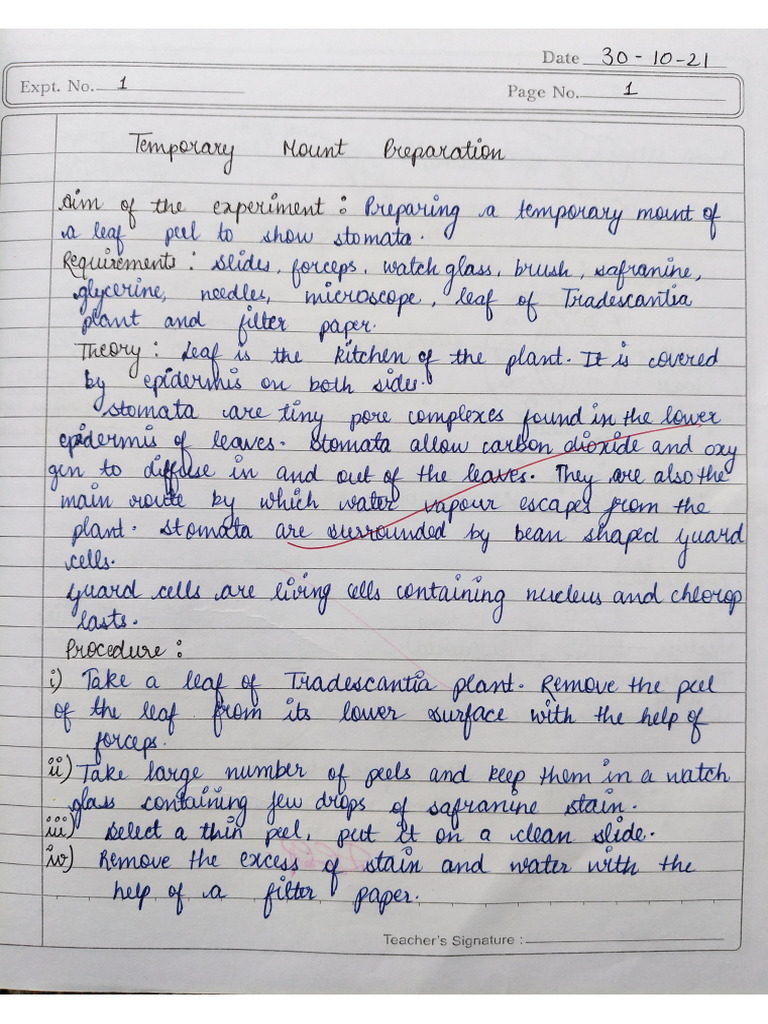 Date 30-10-21
Expt. No. 1
Page No. 1
Temporary Mount Preparation
Aim of the experiment : Preparing a temporary mount of
a leaf peel to show stomata.
Requirements : Slides, forceps, watch glass, brush, safranine,
glycerine, needles, microscope, leaf of Tradescantia
plant and filter paper.
Theory : Leaf is the kitchen of the plant. It is covered
by epidermis on both sides.
Stomata are tiny pore complexes found in the lower
epidermis of leaves. Stomata allow carbon dioxide and oxy
gen to diffuse in and out of the leaves. They are also the
main route by which water vapour escapes from the
plant. Stomata are surrounded by bean shaped guard
cells.
Guard cells are living cells containing nucleus and chlorop
lasts.
Procedure :
i) Take a leaf of Tradescantia plant. Remove the peel
of the leaf from its lower surface with the help of
forceps.
ii) Take large number of peels and keep them in a watch
glass containing few drops of safranine stain.
iii) Select a thin peel, put it on a clean slide.
iv) Remove the excess of stain and water with the
help of a filter paper.
Teacher's Signature :